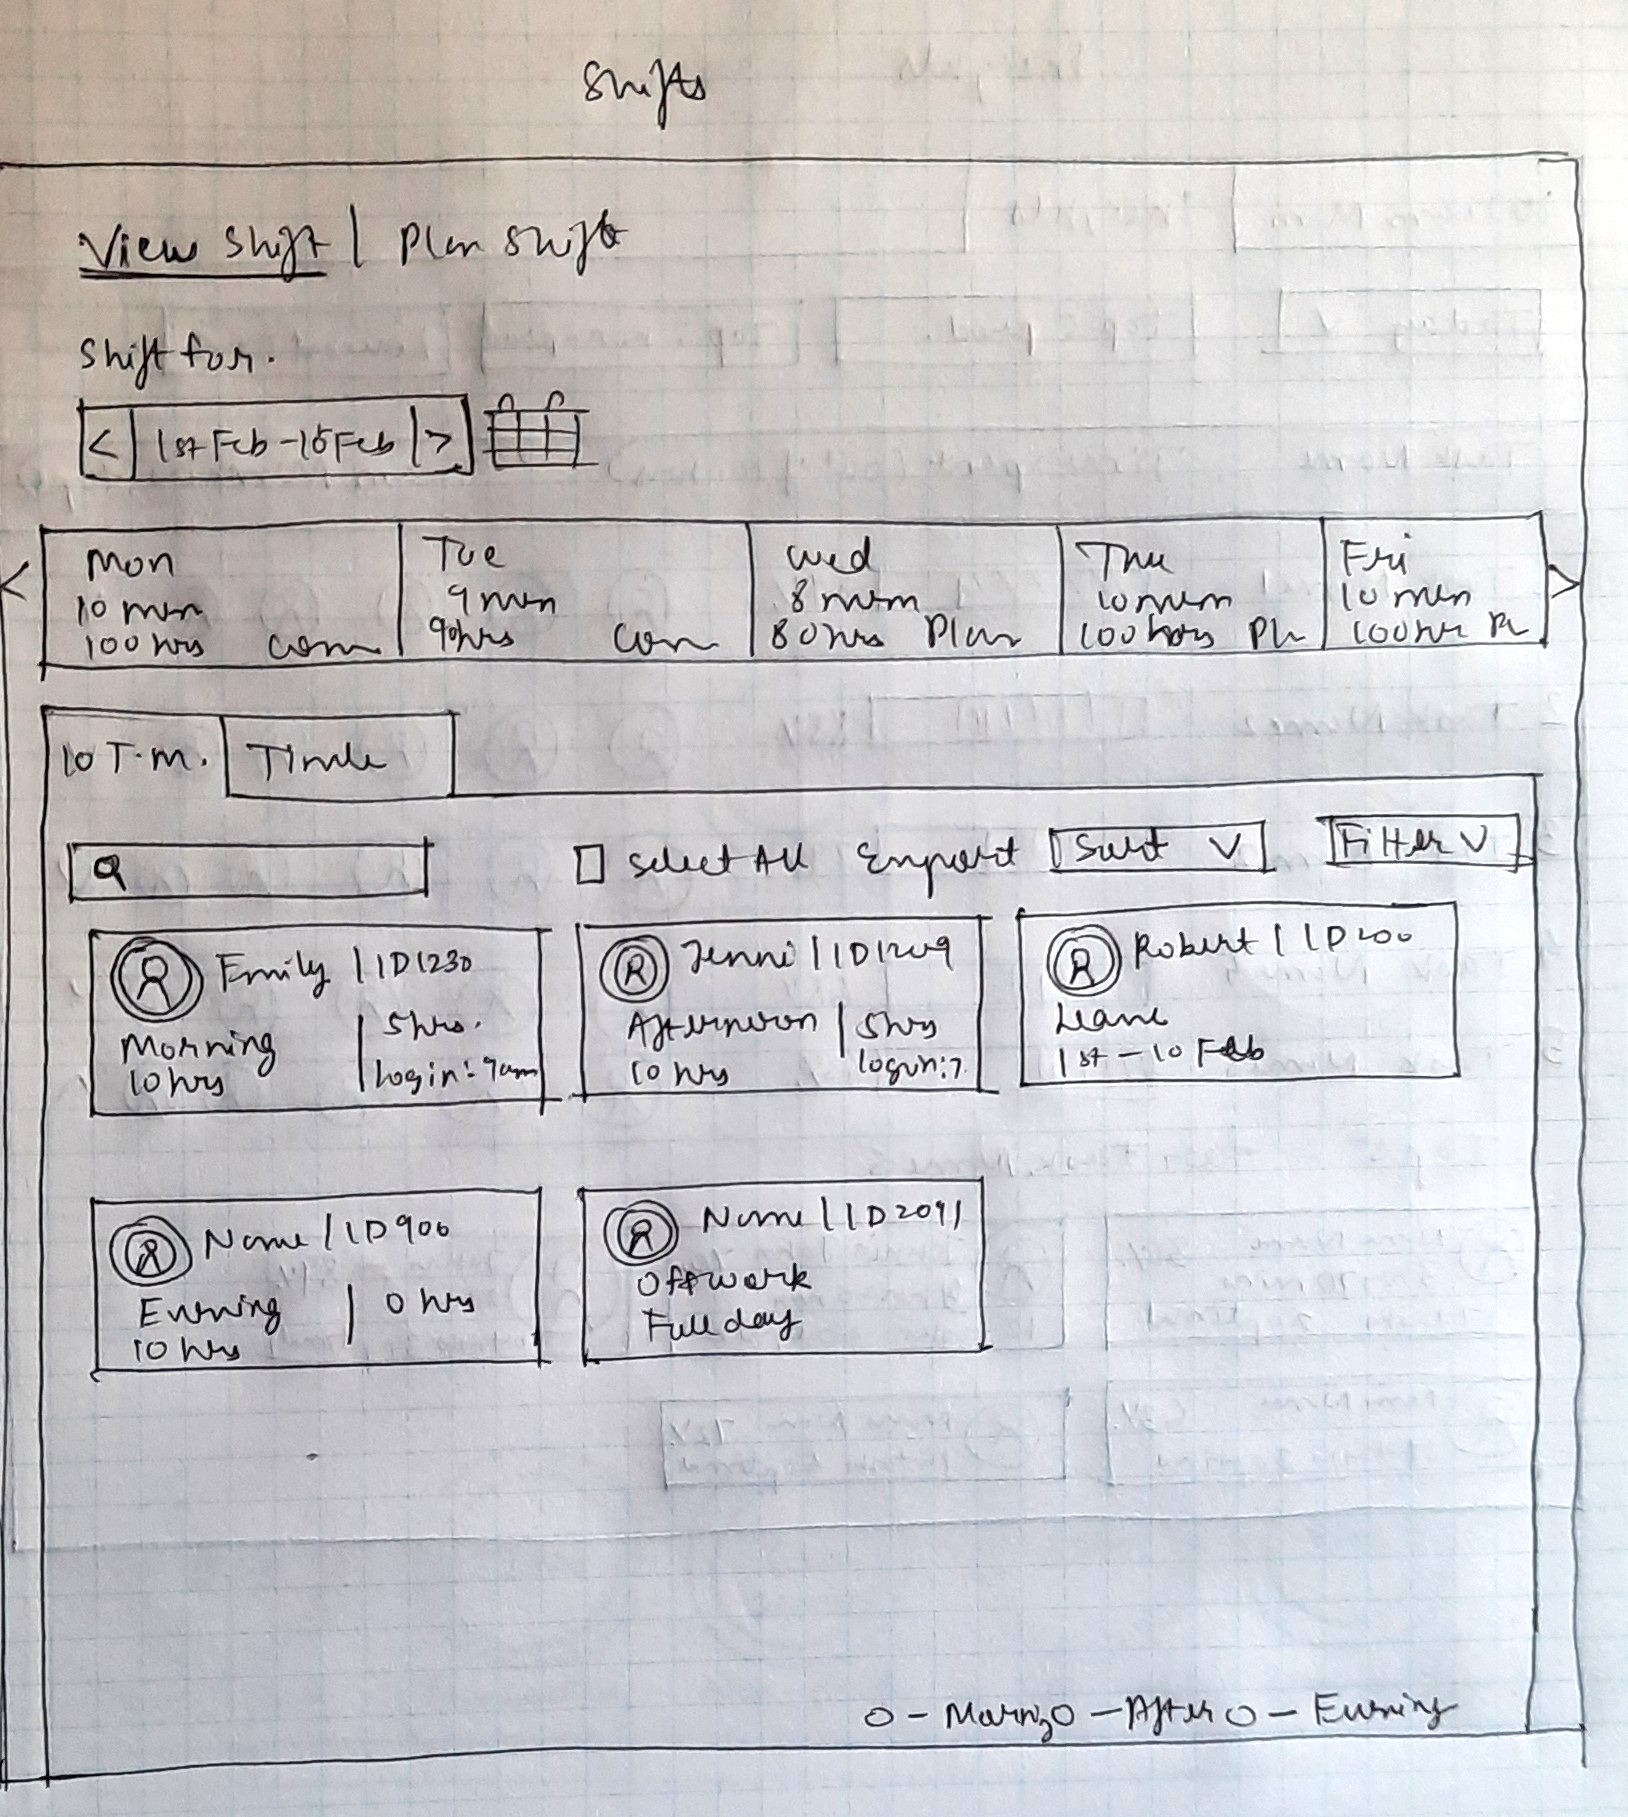 Shifts
View Shift | Plan Shift
Shift for.
< 1st Feb - 15 Feb >
Mon
10 mem
100 hrs com
Tue
9 mem
90hrs com
Wed
8 mem
80hrs Plan
Thu
10 mem
100 hrs Pln
Fri
10 mem
100 hr Pl
< >
10 T.M.
Select All Export Sort V Filter V
Emily | ID1230
Morning | 5hrs.
10 hrs | login: 9am
Jenni | ID1209
Afternoon | 5hrs
10 hrs login:7
Robert | ID200
Leave
1st - 10 Feb
Name | ID900
Evening | 0 hrs
10 hrs
Name | ID2091
Off work
Full day
O - Morning O - After O - Evening